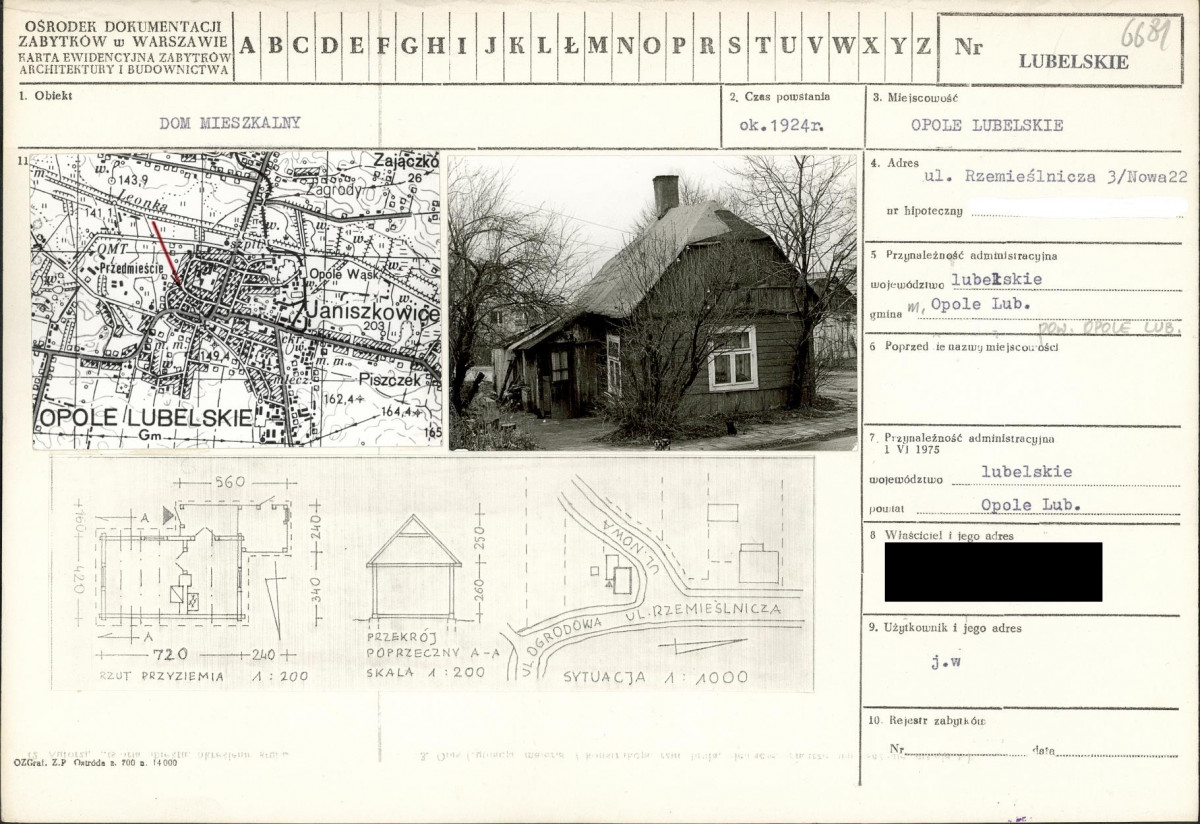 OŚRODEK DOKUMENTACJI
ZABYTKÓW w WARSZAWIE
KARTA EWIDENCYJNA ZABYTKÓW
ARCHITEKTURY I BUDOWNICTWA
A B C D E F G H I J K L Ł M N O P R S T U V W X Y Z
Nr
6681
LUBELSKIE
1. Obiekt
DOM MIESZKALNY
2. Czas powstania
ok.1924r.
3. Miejscowość
OPOLE LUBELSKIE
11
Zajączkó
26
Zagrody
143,9
Leonka
141,1
szpit.
POMT
Przedmieście
Opole Wąsk.
Janiszkowice
203
149,4
m. m.
cukr.
mlecz.
Piszczek
162,4
164,4
165
OPOLE LUBELSKIE
Gm
4. Adres
ul. Rzemieślnicza 3/Nowa22
nr hipoteczny
5 Przynależność administracyjna
województwo lubelskie
gmina m, Opole Lub.
POW. OPOLE LUB.
6 Poprzednie nazwy miejscowości
7. Przynależność administracyjna
1 VI 1975
województwo lubelskie
powiat Opole Lub.
8 Właściciel i jego adres
9. Użytkownik i jego adres
j.w
10. Rejestr zabytków
Nr data
560
A
160
420
240
340
A
720 240
RZUT PRZYZIEMIA 1:200
250
260
PRZEKRÓJ
POPRZECZNY A-A
SKALA 1:200
UL. NOWA
UL. RZEMIEŚLNICZA
UL OGRODOWA
SYTUACJA 1:1000
OZGraf. Z.P Ostróda z. 700 n. 14 000